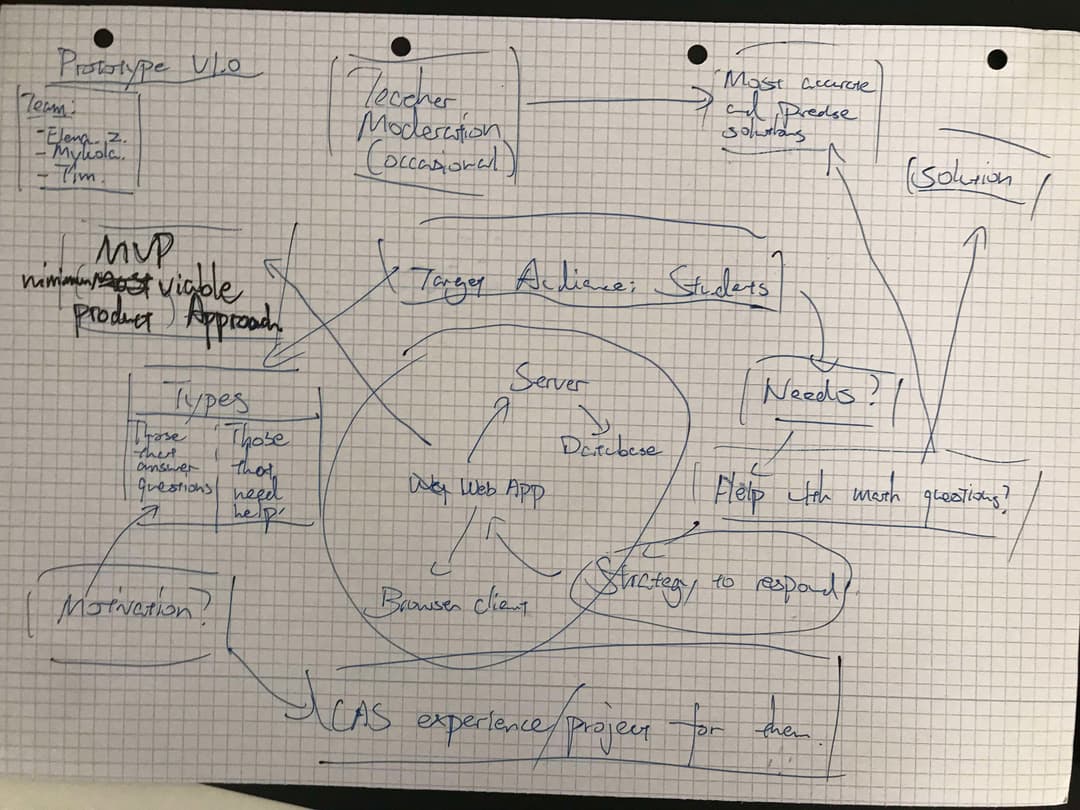 Prototype V1.0
Team:
- Elena Z.
- Mykola.
- Tim.
Teacher
Moderation
(occasional)
Most accurate
and precise
solutions
Solution
MVP
minimum viable
product Approach
Target Audience: Students
Types
Those
that
answer
questions
Those
that
need
help.
Server
Database
Web App
Browser client
Needs?
Help with math questions?
Strategy to respond
Motivation?
CAS experience/project for them.